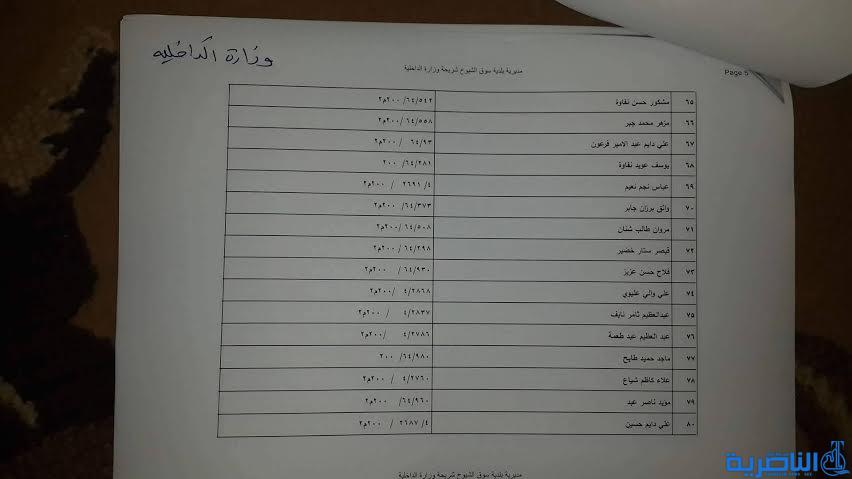 وزارة الداخلية
مديرية بلدية سوق الشيوخ شريحة وزارة الداخلية
Page 5
٦٥ مشكور حسن نفاوة ٦٤/٥٤٢/ ٢٠٠م٢
٦٦ مزهر محمد جبر ٦٤/٥٥٨/ ٢٠٠م٢
٦٧ علي دايم عبد الامير فرعون ٦٤/٩٣ / ٢٠٠م٢
٦٨ يوسف عويد نفاوة ٦٤/٢٨١/ ٢٠٠
٦٩ عباس نجم نعيم ٤/ ٢٦٩١ / ٢٠٠م٢
٧٠ واثق برزان جابر ٦٤/٣٧٣/ ٢٠٠م٢
٧١ مروان طالب شنان ٦٤/٥٠٨/ ٢٠٠م٢
٧٢ قيصر ستار خضير ٦٤/٢٩٨/ ٢٠٠م٢
٧٣ فلاح حسن عزيز ٦٤/٩٣٠/ ٢٠٠م٢
٧٤ علي والي عليوي ٤/٢٨٦٨ /٢٠٠م٢
٧٥ عبدالعظيم ثامر نايف ٤/٢٨٣٧ / ٢٠٠م٢
٧٦ عبد العظيم عبد طعمة ٤/٢٧٨٦ /٢٠٠م٢
٧٧ ماجد حميد طايح ٦٤/٩٨٠/ ٢٠٠
٧٨ علاء كاظم شياع ٤/٢٧٦٠ / ٢٠٠م٢
٧٩ مؤيد ناصر عبد ٦٤/٩٦٠/ ٢٠٠م٢
٨٠ علي دايم حسين ٤/ ٢٦٨٧ / ٢٠٠م٢
مديرية بلدية سوق الشيوخ شريحة وزارة الداخلية
الناصرية